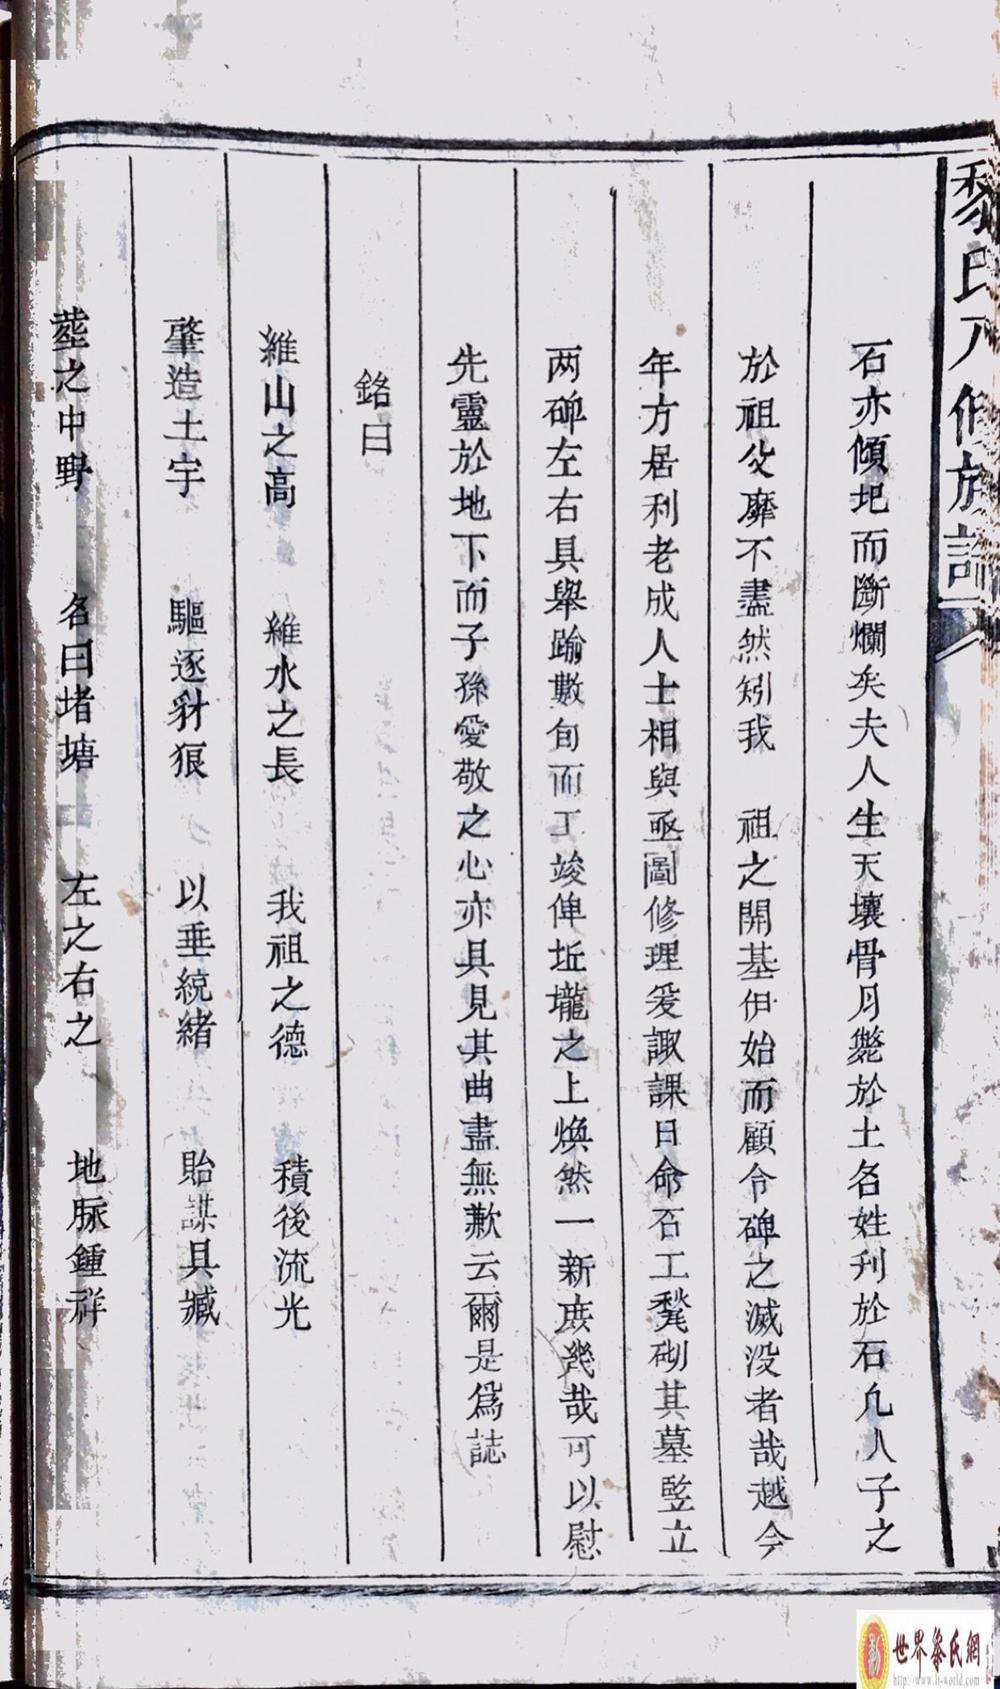 黎氏八修族譜
石亦傾圮而斷爛矣夫人生天壤骨月斃於土名姓刊於石凢人子之
於祖父靡不盡然矧我 祖之開基伊始而顧令碑之滅没者哉越今
年方居利老成人士相與亟圖修理爰諏課日命石工甃砌其墓竪立
两碑左右具舉踰數旬而工竣俾坵壠之上煥然一新庻幾哉可以慰
先靈於地下而子孫愛敬之心亦具見其曲盡無歉云爾是爲誌
銘曰
維山之高 維水之長 我祖之德 積後流光
肇造土宇 驅逐豺狼 以垂統緒 貽謀具臧
塟之中野 名曰堵塘 左之右之 地脈鍾祥
世界黎氏網
http://www.li-world.com